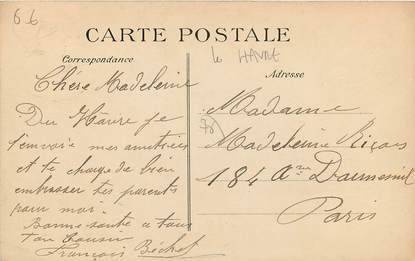 66
CARTE POSTALE
le HAVRE
Correspondance
Adresse
Chère Madeleine
Du Hâvre je
t'envoie mes amitiées
et te charge de bien
embrasser tes parents
pour moi.
Bonne santé a tous
Ton Cousin
François Béchet
Madame
Madeleine
184 Ave Daumesnil
Paris